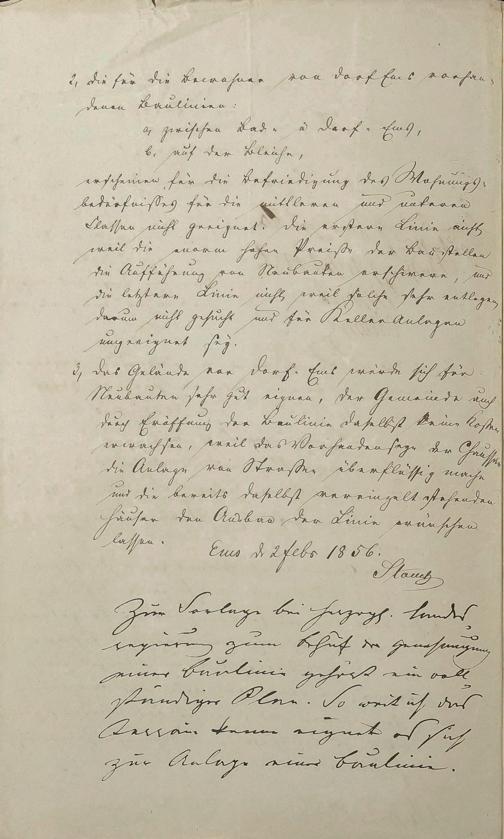 2, die für die Bewohner von Dorf Ems vorhan-
denen Baulinien:
a, zwischen Bad- u Dorf-Ems,
b, auf der Bleiche,
erscheinen für die Befriedigung des Wohnungs-
bedürfnisses für die mittleren und unteren
Classen nicht geeignet. Die erstere Linie nicht
weil die enorm hohen Preiße der Baustellen
die Aufführung von Neubauten erschwere, und
die letztere Linie nicht, weil solche sehr entlegen,
darum nicht gesucht und für Keller Anlagen
ungeeignet sey.
3, das Gelände vor Dorf-Ems würde sich für
Neubauten sehr gut eignen, der Gemeinde auch
durch Eröffnung der Baulinie daselbst keine Kosten
erwachsen, weil das Vorhandensein der Chaussee
die Anlage von Straßen überflüssig mache
und die bereits daselbst vereinzelt stehenden
Häuser den Ausbau der Linie wünschen
lassen.
Ems d 2 Febr 1856.
Zur Vorlage bei Herzogl. Landes
regierung zum Behuf der Genehmigung
einer Baulinie gehört ein voll
ständiger Plan. So weit ich das
Terrain kenne eignet es sich
zur Anlage einer Baulinie.